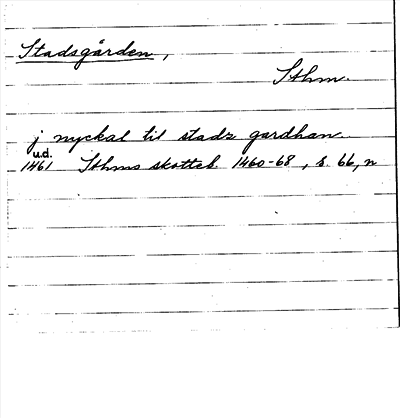 Stadsgården,
Sthm.
j nyckal til stadz gardhan
u.d.
1461 Sthms skotteb 1460-68, s. 66, n